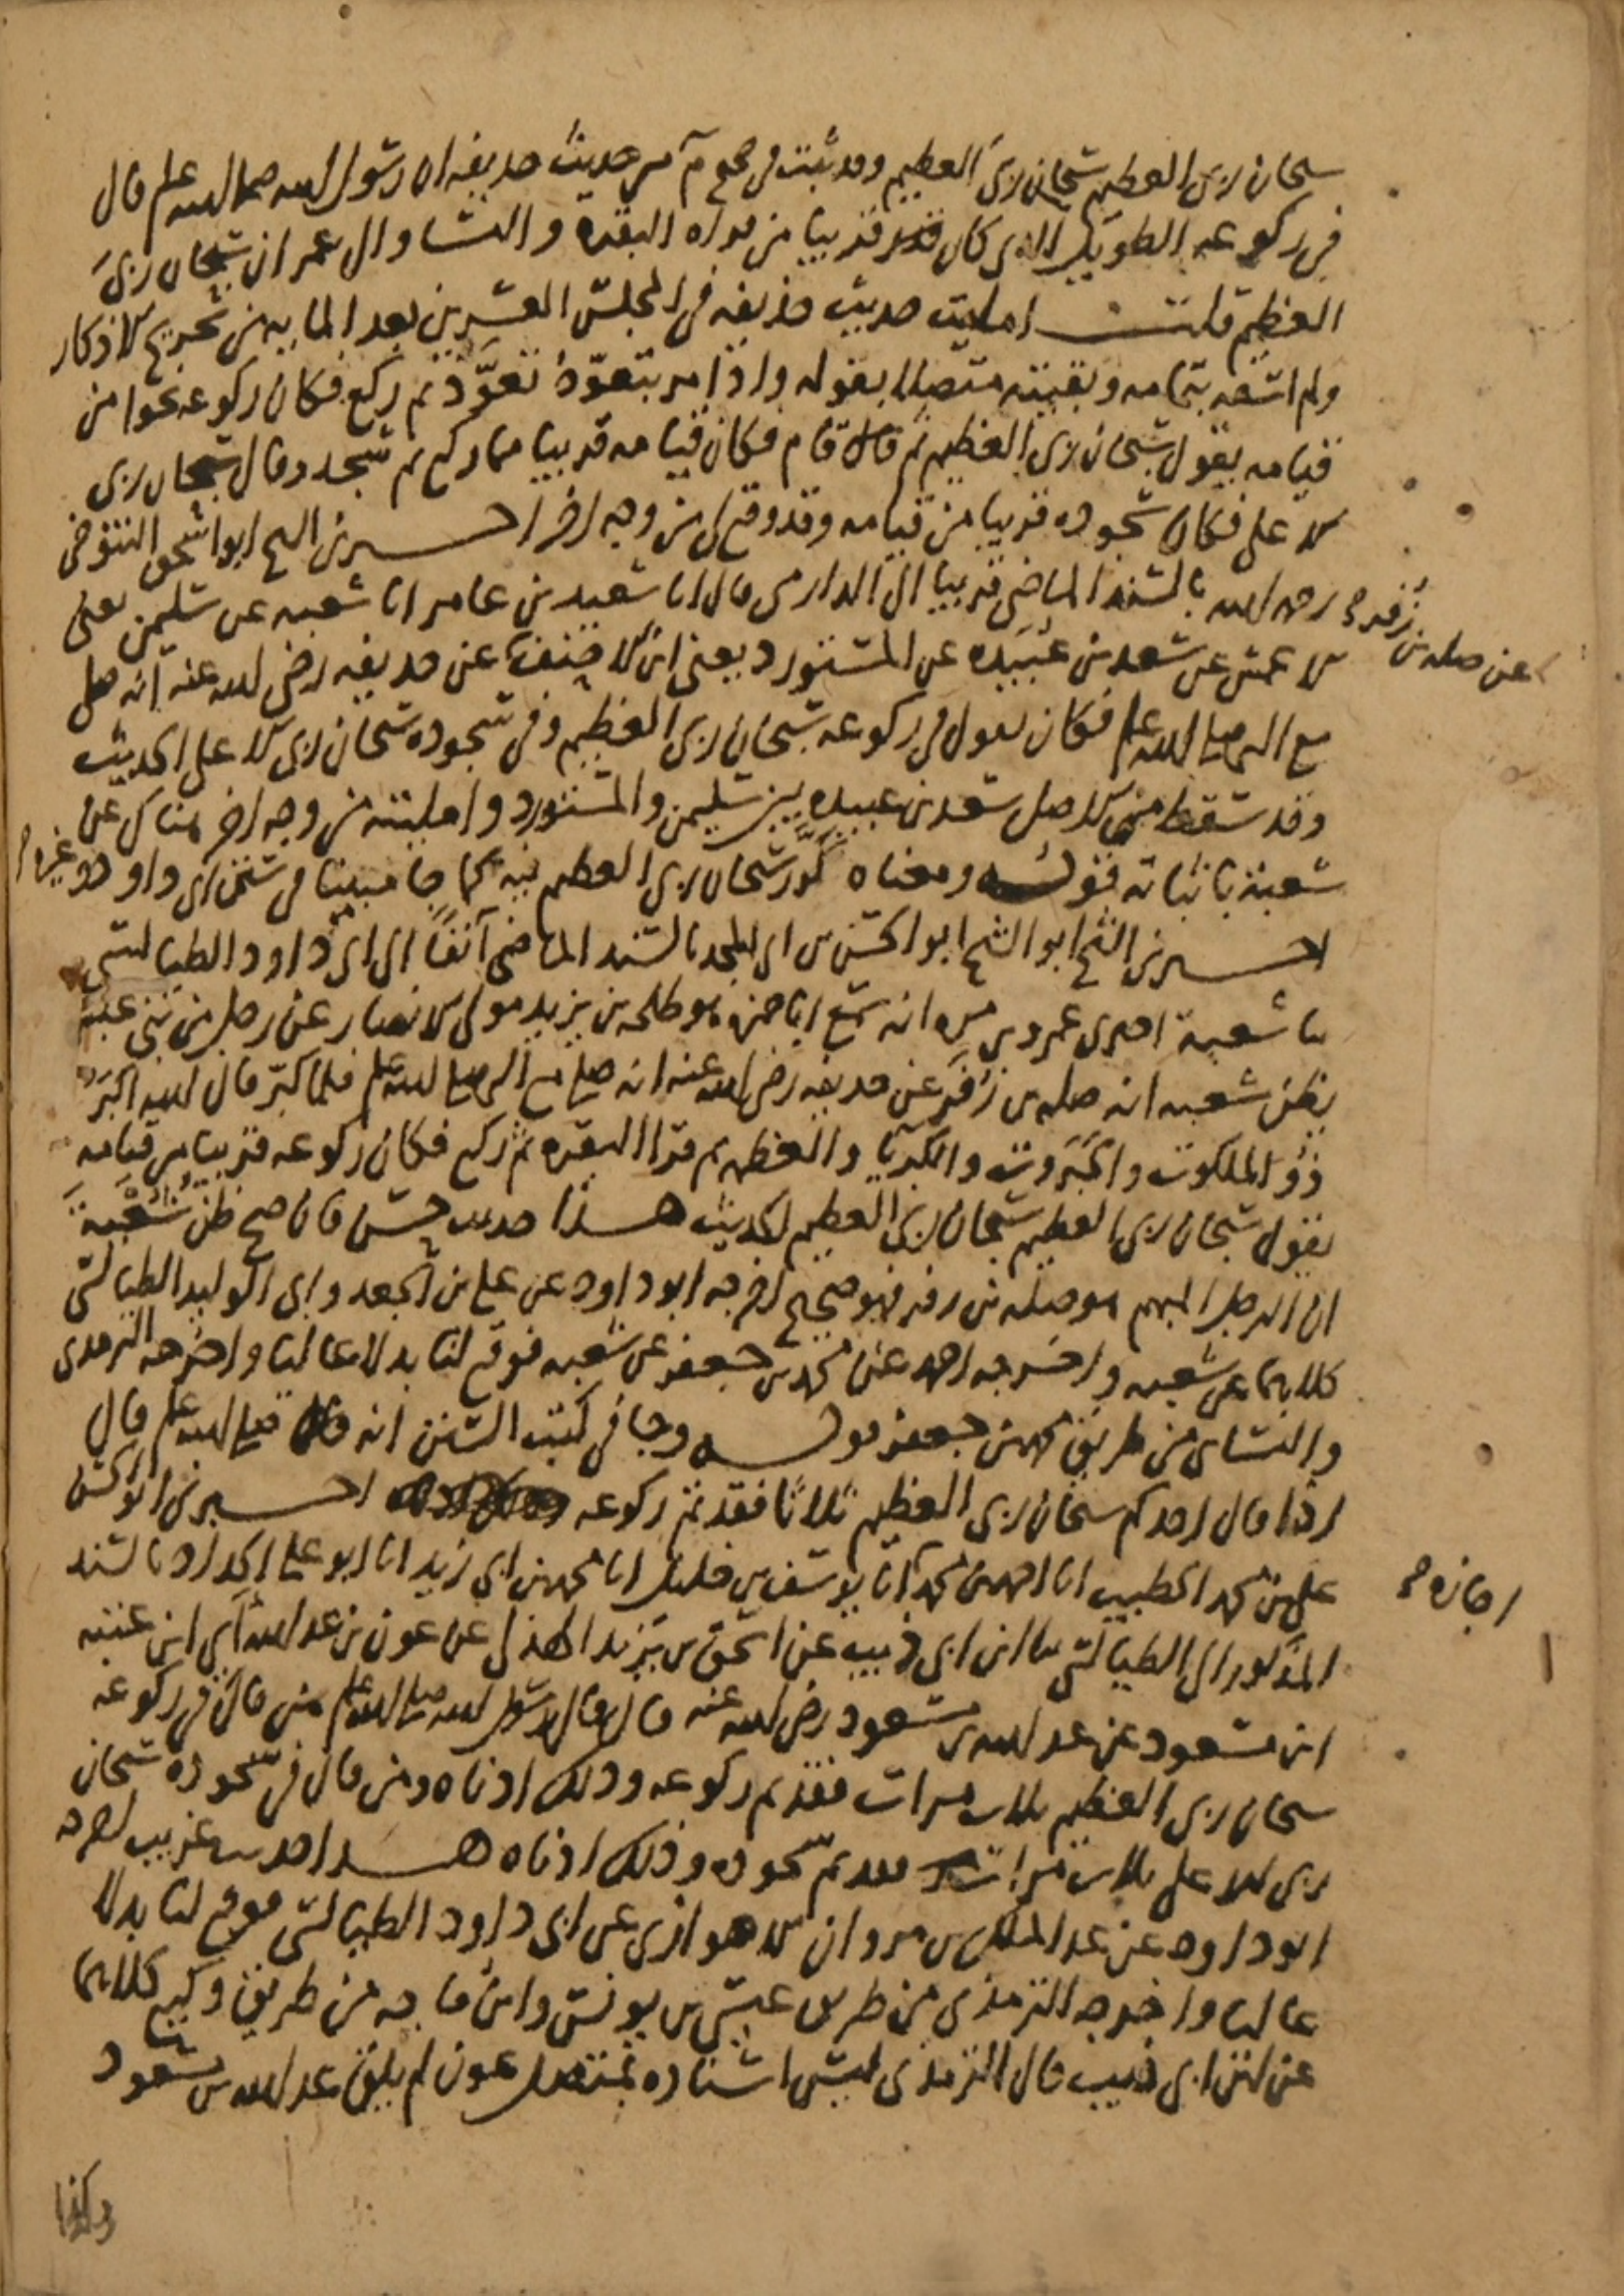 سبحان ربي العظيم سبحان ربي العظيم وقد ثبت في صحيح م من حديث حذيفه ان رسول الله صلى الله عليه وسلم قال
في ركوعه الطويل الذي كان قريبا من قراه البقرة والنسا وال عمران سبحان ربي
العظيم قلت امليت حديث حذيفه في المجلس العشرين بعد المايه من تخريج الاذكار
ولم اسقه بتمامه وبقيته متصلا بقوله واذا مر بتعوذ تعوذ ثم ركع فكان ركوعه نحوا من
قيامه يقول سبحان ربي العظيم ثم قام فكان قيامه قريبا مما ركع ثم سجد وقال سبحان ربي
الاعلى فكان سجوده قريبا من قيامه وقد وقع لي من وجه اخر اخبرني الشيخ ابو اسحق التنوخي
رحمه الله بالسند الماضي قريبا الى الدارمي قال انا سعيد بن عامر انا شعبه عن سليمن يعني
الاعمش عن سعد بن عبيده عن المستورد يعني ابن الاحنف عن صله بن زفر عن حذيفه رضي الله عنه انه صلى
مع النبي صلى الله عليه وسلم فكان يقول في ركوعه سبحان ربي العظيم وفي سجوده سبحان ربي الاعلى الحديث
وقد سقط من الاصل سعد بن عبيده بين سليمن والمستورد وامليته من وجه اخر هناك عن
شعبة باثباته قوله ومعناه كرر سبحان ربي العظيم فيه كما جا مبينا في سنن ابي داود وغيره
اخبرني الشيخ ابو الحسن بن ابي المجد بالسند الماضي آنفا الى ابي داود الطيالسي
نا شعبة اخبرني عمرو بن مره انه سمع ابا حمزه هو طلحه بن يزيد مولى الانصار عن رجل من بني عبس
يظن شعبه انه صله بن زفر عن حذيفه رضي الله عنه انه صلى مع النبي صلى الله عليه وسلم فلما كبر قال الله اكبر
ذو الملكوت والجبروت والكبريا والعظمه ثم قرا البقره ثم ركع فكان ركوعه قريبا من قيامه
يقول سبحان ربي العظيم سبحان ربي العظيم الحديث هذا حديث حسن فان صح ظن شعبة
ان الرجل المبهم هو صله بن زفر فهو صحيح اخرجه ابو داود عن علي بن الجعد وابي الوليد الطيالسي
كلاهما عن شعبه واخرجه احمد عن محمد بن جعفر عن شعبه فوقع لنا بدلا عاليا واخرجه الترمذي
والنساي من طريق محمد بن جعفر قوله وجا في كتب السنن انه صلى الله عليه وسلم قال
اذا قال احدكم سبحان ربي العظيم ثلاثا فقد تم ركوعه اخبرني ابو الحسن
علي بن محمد الخطيب انا احمد بن محمد اجازه انا يوسف بن خليل انا محمد بن ابي زيد انا ابو علي الحداد بالسند
المذكور الى الطيالسي نا ابن ابي ذيب عن اسحق بن يزيد الهذلي عن عون بن عبد الله اي ابن عتبه
ابن مسعود عن عبد الله بن مسعود رضي الله عنه قال قال رسول الله صلى الله عليه وسلم من قال في ركوعه
سبحان ربي العظيم ثلاث مرات فقد تم ركوعه وذلك ادناه ومن قال في سجوده سبحان
ربي الاعلى ثلاث مرات فقد تم سجوده وذلك ادناه هذا حديث غريب اخرجه
ابو داود عن عبد الملك بن مروان الاهوازي عن ابي داود الطيالسي فوقع لنا بدلا
عاليا واخرجه الترمذي من طريق عيسى بن يونس وابن ماجه من طريق وكيع كلاهما
عن ابن ابي ذيب قال الترمذي ليس اسناده بمتصل عون لم يلق عبد الله بن مسعود
وكذا